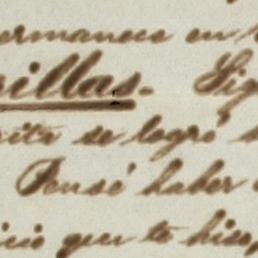 ermanece en
illas. Sig
cita se logró
Pensé haber
icio que te hiso